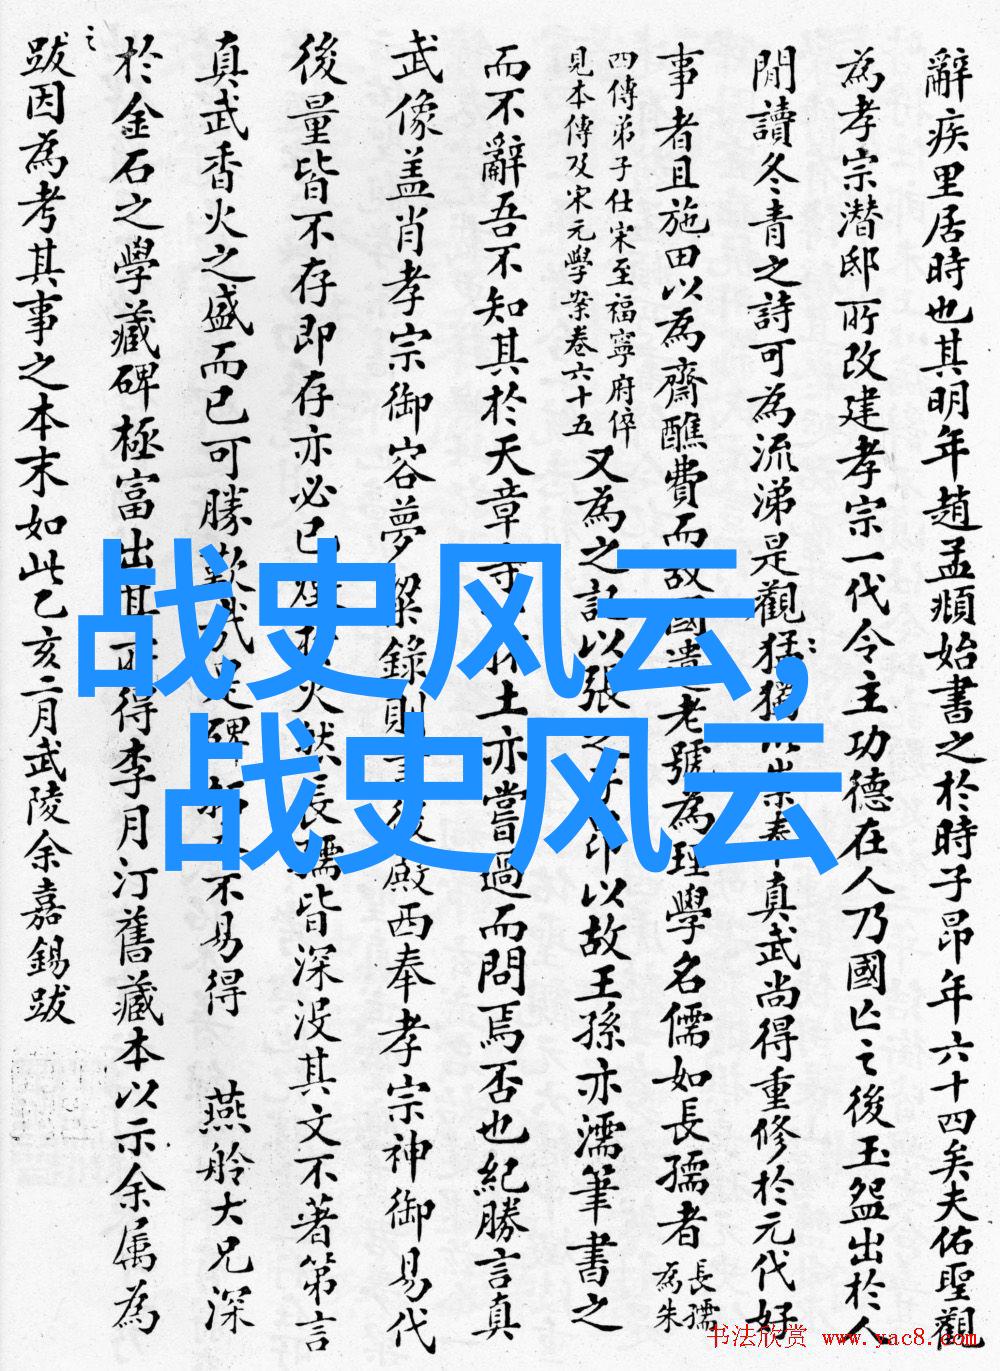 辭疾里居時也其明年趙孟頫始書之於時子昂年六十四矣夫佑聖觀
為孝宗潛邸所改建孝宗一代令主功德在人乃國亡之後玉盌出於人
閒讀冬青之詩可為流涕是觀獨以崇奉真武尚得重修於元代好
事者且施田以為齋醮費而故國遺老號為理學名儒如長孺者長孺為朱
四傳弟子仕宋至福寧府倅見本傳及宋元學案卷六十五又為之記以張之子昂以故王孫亦濡筆書之
而不辭吾不知其於天章寺土亦嘗過而問焉否也紀勝言真
武像盖肖孝宗御容夢粱錄則言後殿西奉孝宗神御易代
後量皆不存即存亦必已火然長孺皆深没其文不著第言
真武香火之盛而已可勝歎哉是碑不易得 燕舲大兄深
於金石之學藏碑極富出其所得李月汀舊藏本以示余属為
跋因為考其事之本末如此乙亥二月武陵余嘉錫跋
战史风云,
战史风云
书法欣赏 www.yac8.com